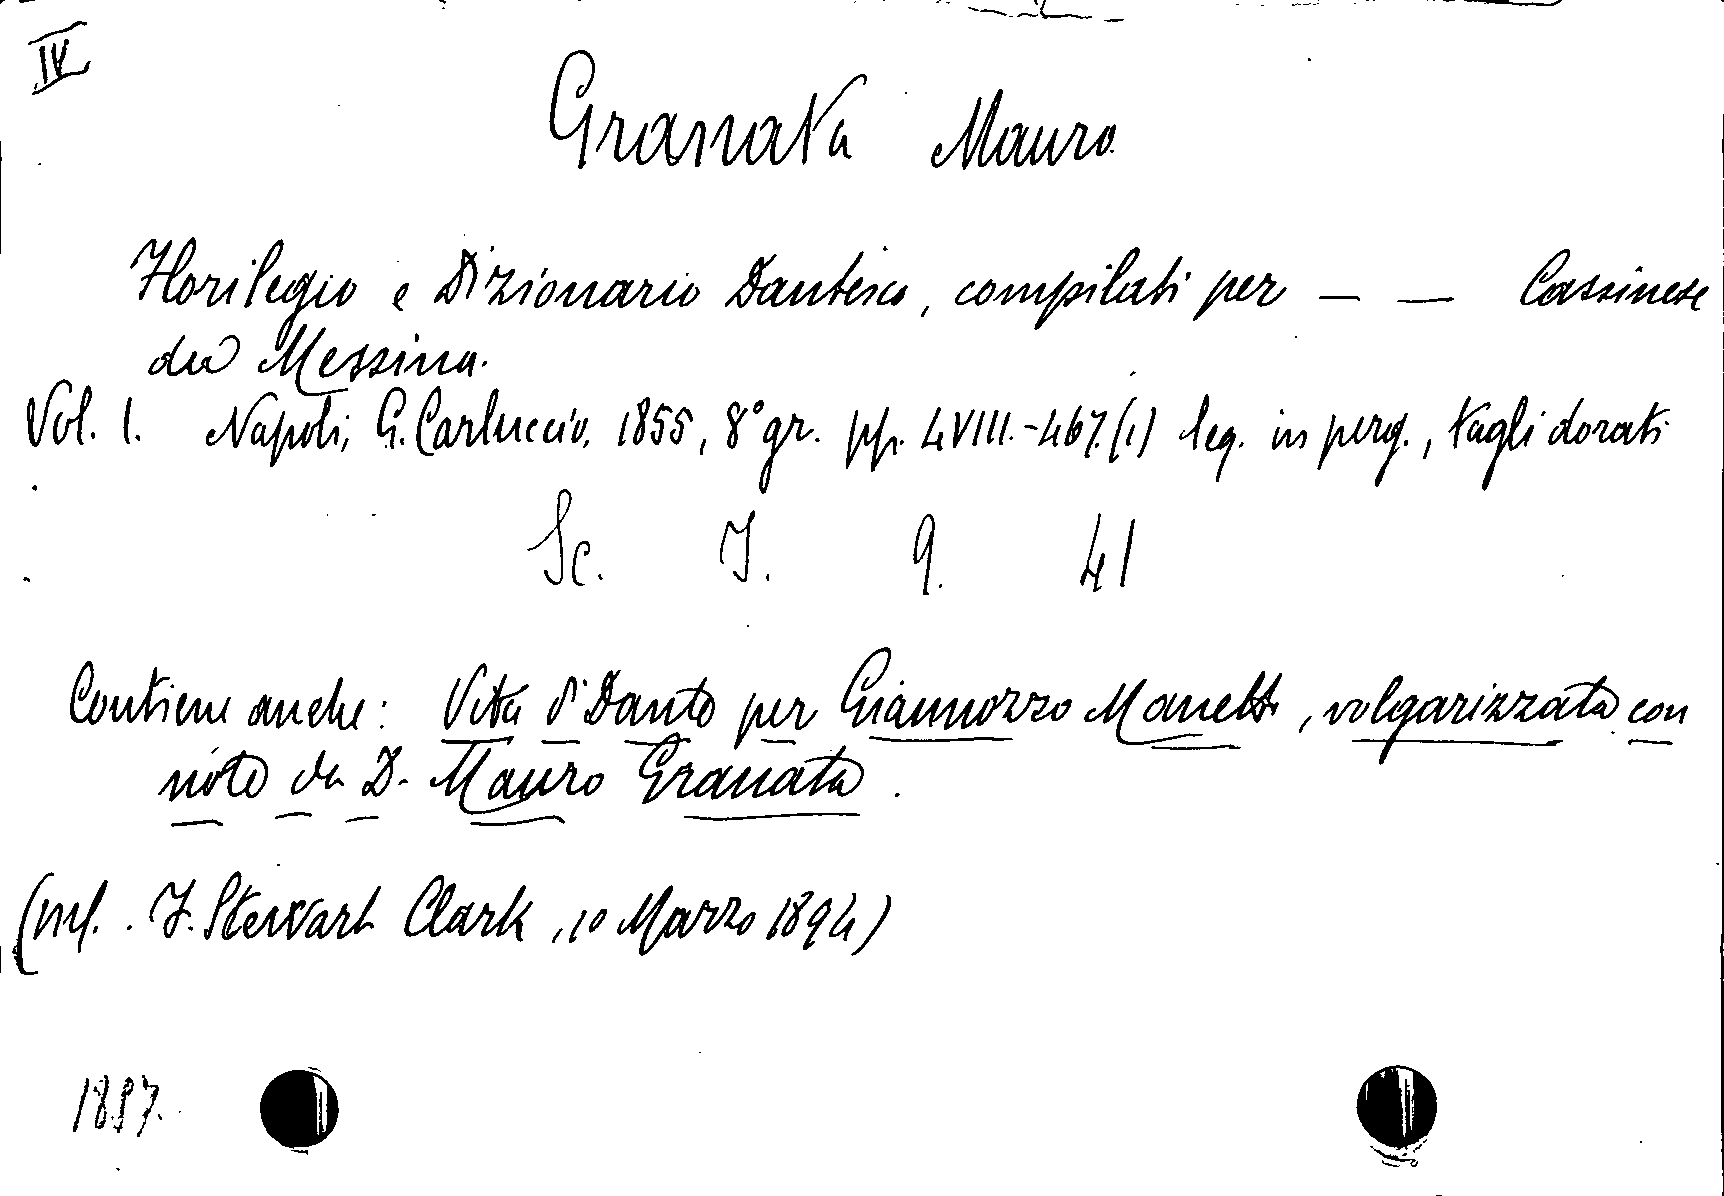 IV
Granata Mauro
Florilegio e Dizionario Dantesco, compilati per — — Cassinese
da Messina.
Vol. I. Napoli, G. Carluccio, 1855, 8° gr. pp. LVIII.-467.(1) leg. in perg., tagli dorati
Sc. I. 9. 41
Contiene anche: Vita di Dante per Giannozzo Manetti, volgarizzata con
note da D. Mauro Granata.
J. Stewart Clark, 10 Marzo 1894)